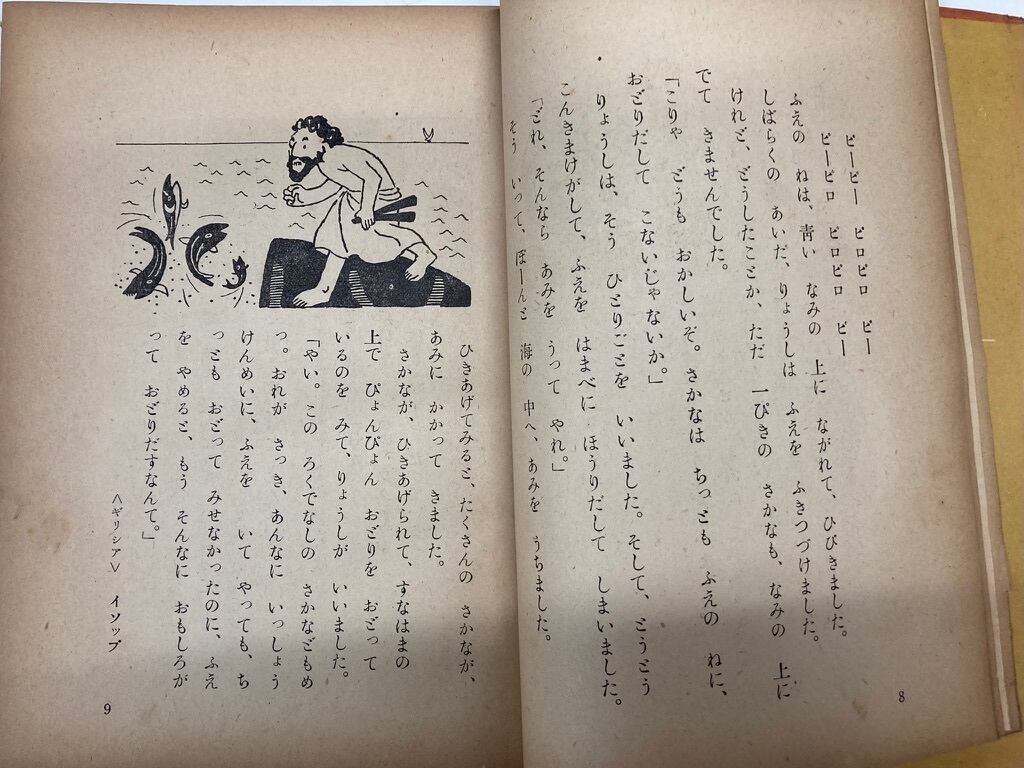 ピーピー　ピロピロ　ピー
ピーピロ　ピロピロ　ピー
ふえの　ねは、青い　なみの　上に　ながれて、ひびきました。
しばらくの　あいだ、りょうしは　ふえを　ふきつづけました。
けれど、どうしたことか、ただ　一ぴきの　さかなも、なみの　上に
でて　きませんでした。
「こりゃ　どうも　おかしいぞ。さかなは　ちっとも　ふえの　ねに、
おどりだして　こないじゃないか。」
りょうしは、そう　ひとりごとを　いいました。そして、とうとう
こんきまけがして、ふえを　はまべに　ほうりだして　しまいました。
「どれ、そんなら　あみを　うって　やれ。」
そう　いって、ぽーんと　海の　中へ、あみを　うちました。
8
ひきあげてみると、たくさんの　さかなが、
あみに　かかって　きました。
さかなが、ひきあげられて、すなはまの
上で　ぴょんぴょん　おどりを　おどって
いるのを　みて、りょうしが　いいました。
「やい。この　ろくでなしの　さかなどもめ
っ。おれが　さっき、あんなに　いっしょう
けんめいに、ふえを　　いて　やっても、ち
っとも　おどって　みせなかったのに、ふえ
を　やめると、もう　そんなに　おもしろが
って　おどりだすなんて。」
＜ギリシア＞　イソップ
9